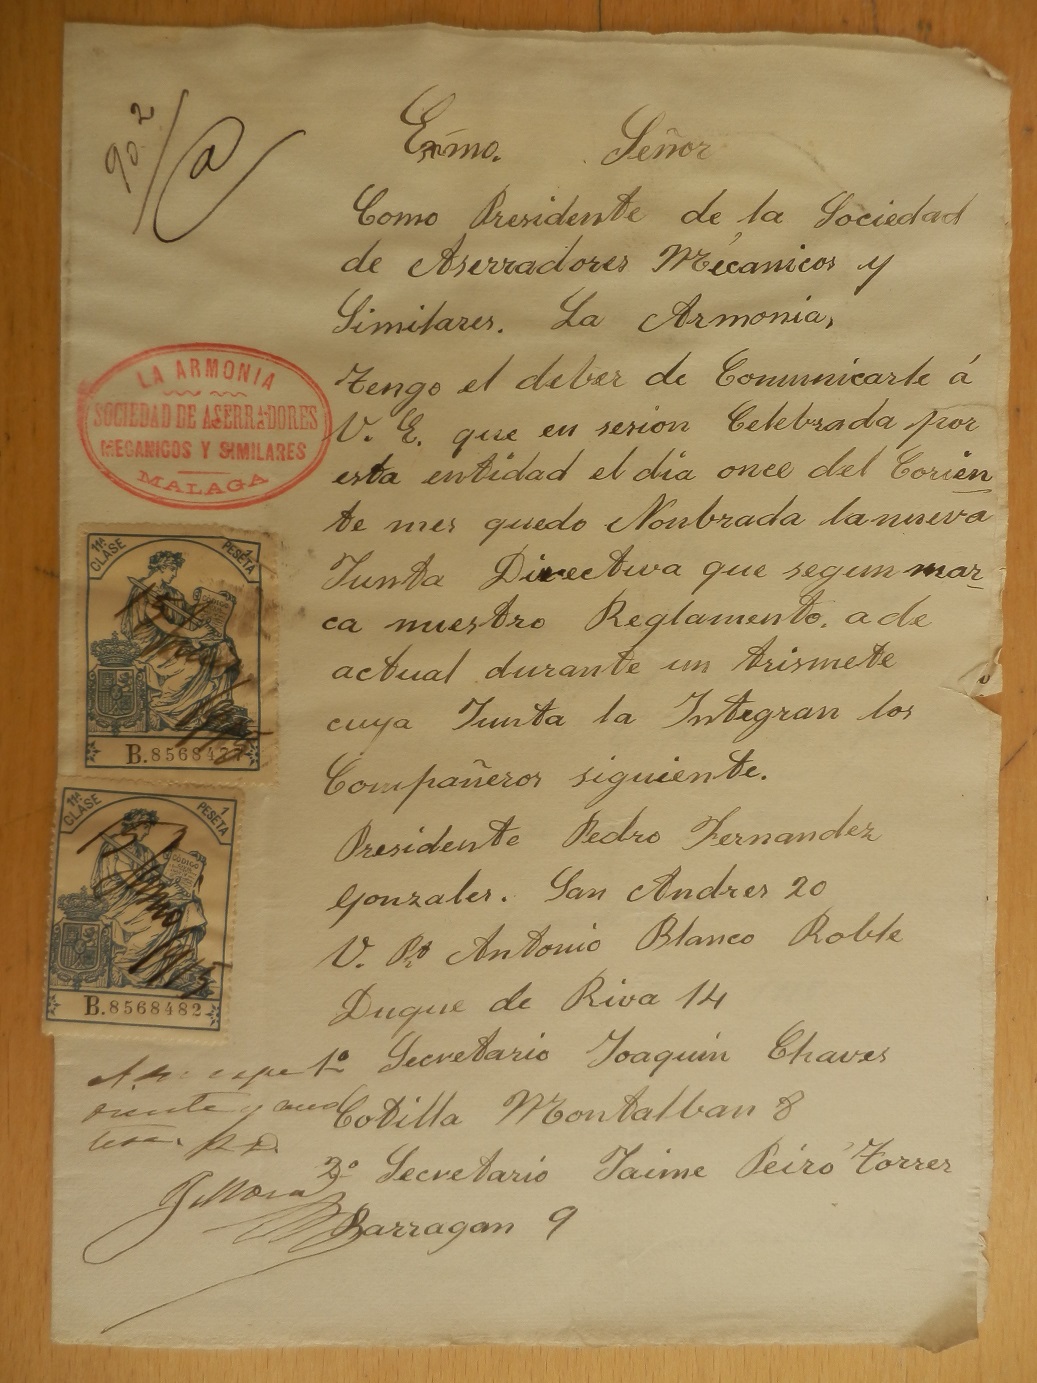 90.2
Exmo. Señor
Como Presidente de la Sociedad
de Aserradores Mécanicos y
Similares. La Armonia,
Tengo el deber de Comunicarle á
V. E. que en sesion Celebrada por
esta entidad el dia once del Corien
te mes quedo Nonbrada la nueva
Junta Directiva que segun mar-
ca nuestro Reglamento. a de
actual durante un trismete
cuya Junta la Integran los
Compañeros siguiente.
Presidente Pedro Fernandez
Gonzales. San Andres 20
V. Pte Antonio Blanco Roble
Duque de Riva 14
1º Secretario Joaquin Chaves
Cotilla Montalban 8
2º Secretario Jaime Peiró Torres
Barragan 9
LA ARMONIA
SOCIEDAD DE ASERRADORES
MECANICOS Y SIMILARES
MALAGA
11ª CLASE
1 PESETA
B.8568487
11ª CLASE
1 PESETA
B.8568482